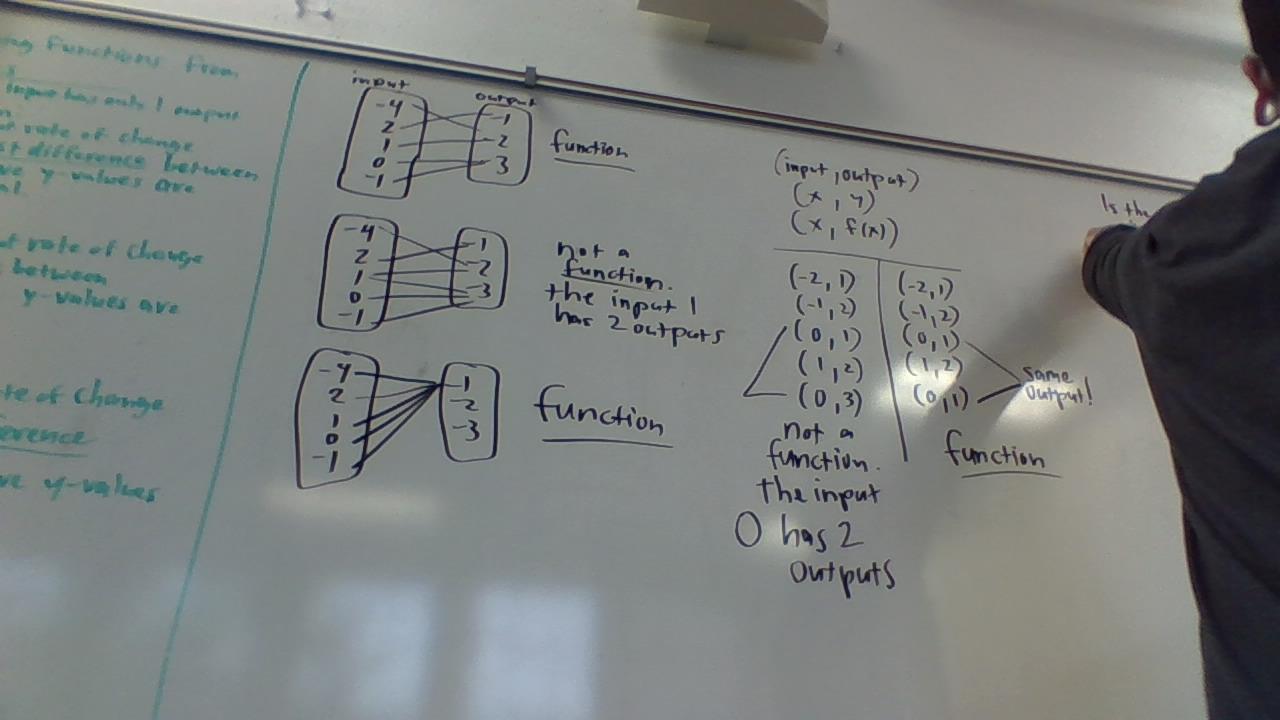 ng functions from
input has only 1 output
rate of change
st difference between
ve y-values are
rate of change
between
y-values are
te of change
erence
ve y-values
input
output
-4
2
1
0
-1
1
2
3
function
-4
2
1
0
-1
1
2
3
not a
function.
the input 1
has 2 outputs
-4
2
1
0
-1
1
2
3
function
(input, output)
(x, y)
(x, f(x))
(-2,1)
(-1,2)
(0,1)
(1,2)
(0,3)
not a
function.
the input
0 has 2
outputs
(-2,1)
(-1,2)
(0,1)
(1,2)
(0,1)
same
output!
function
Is the